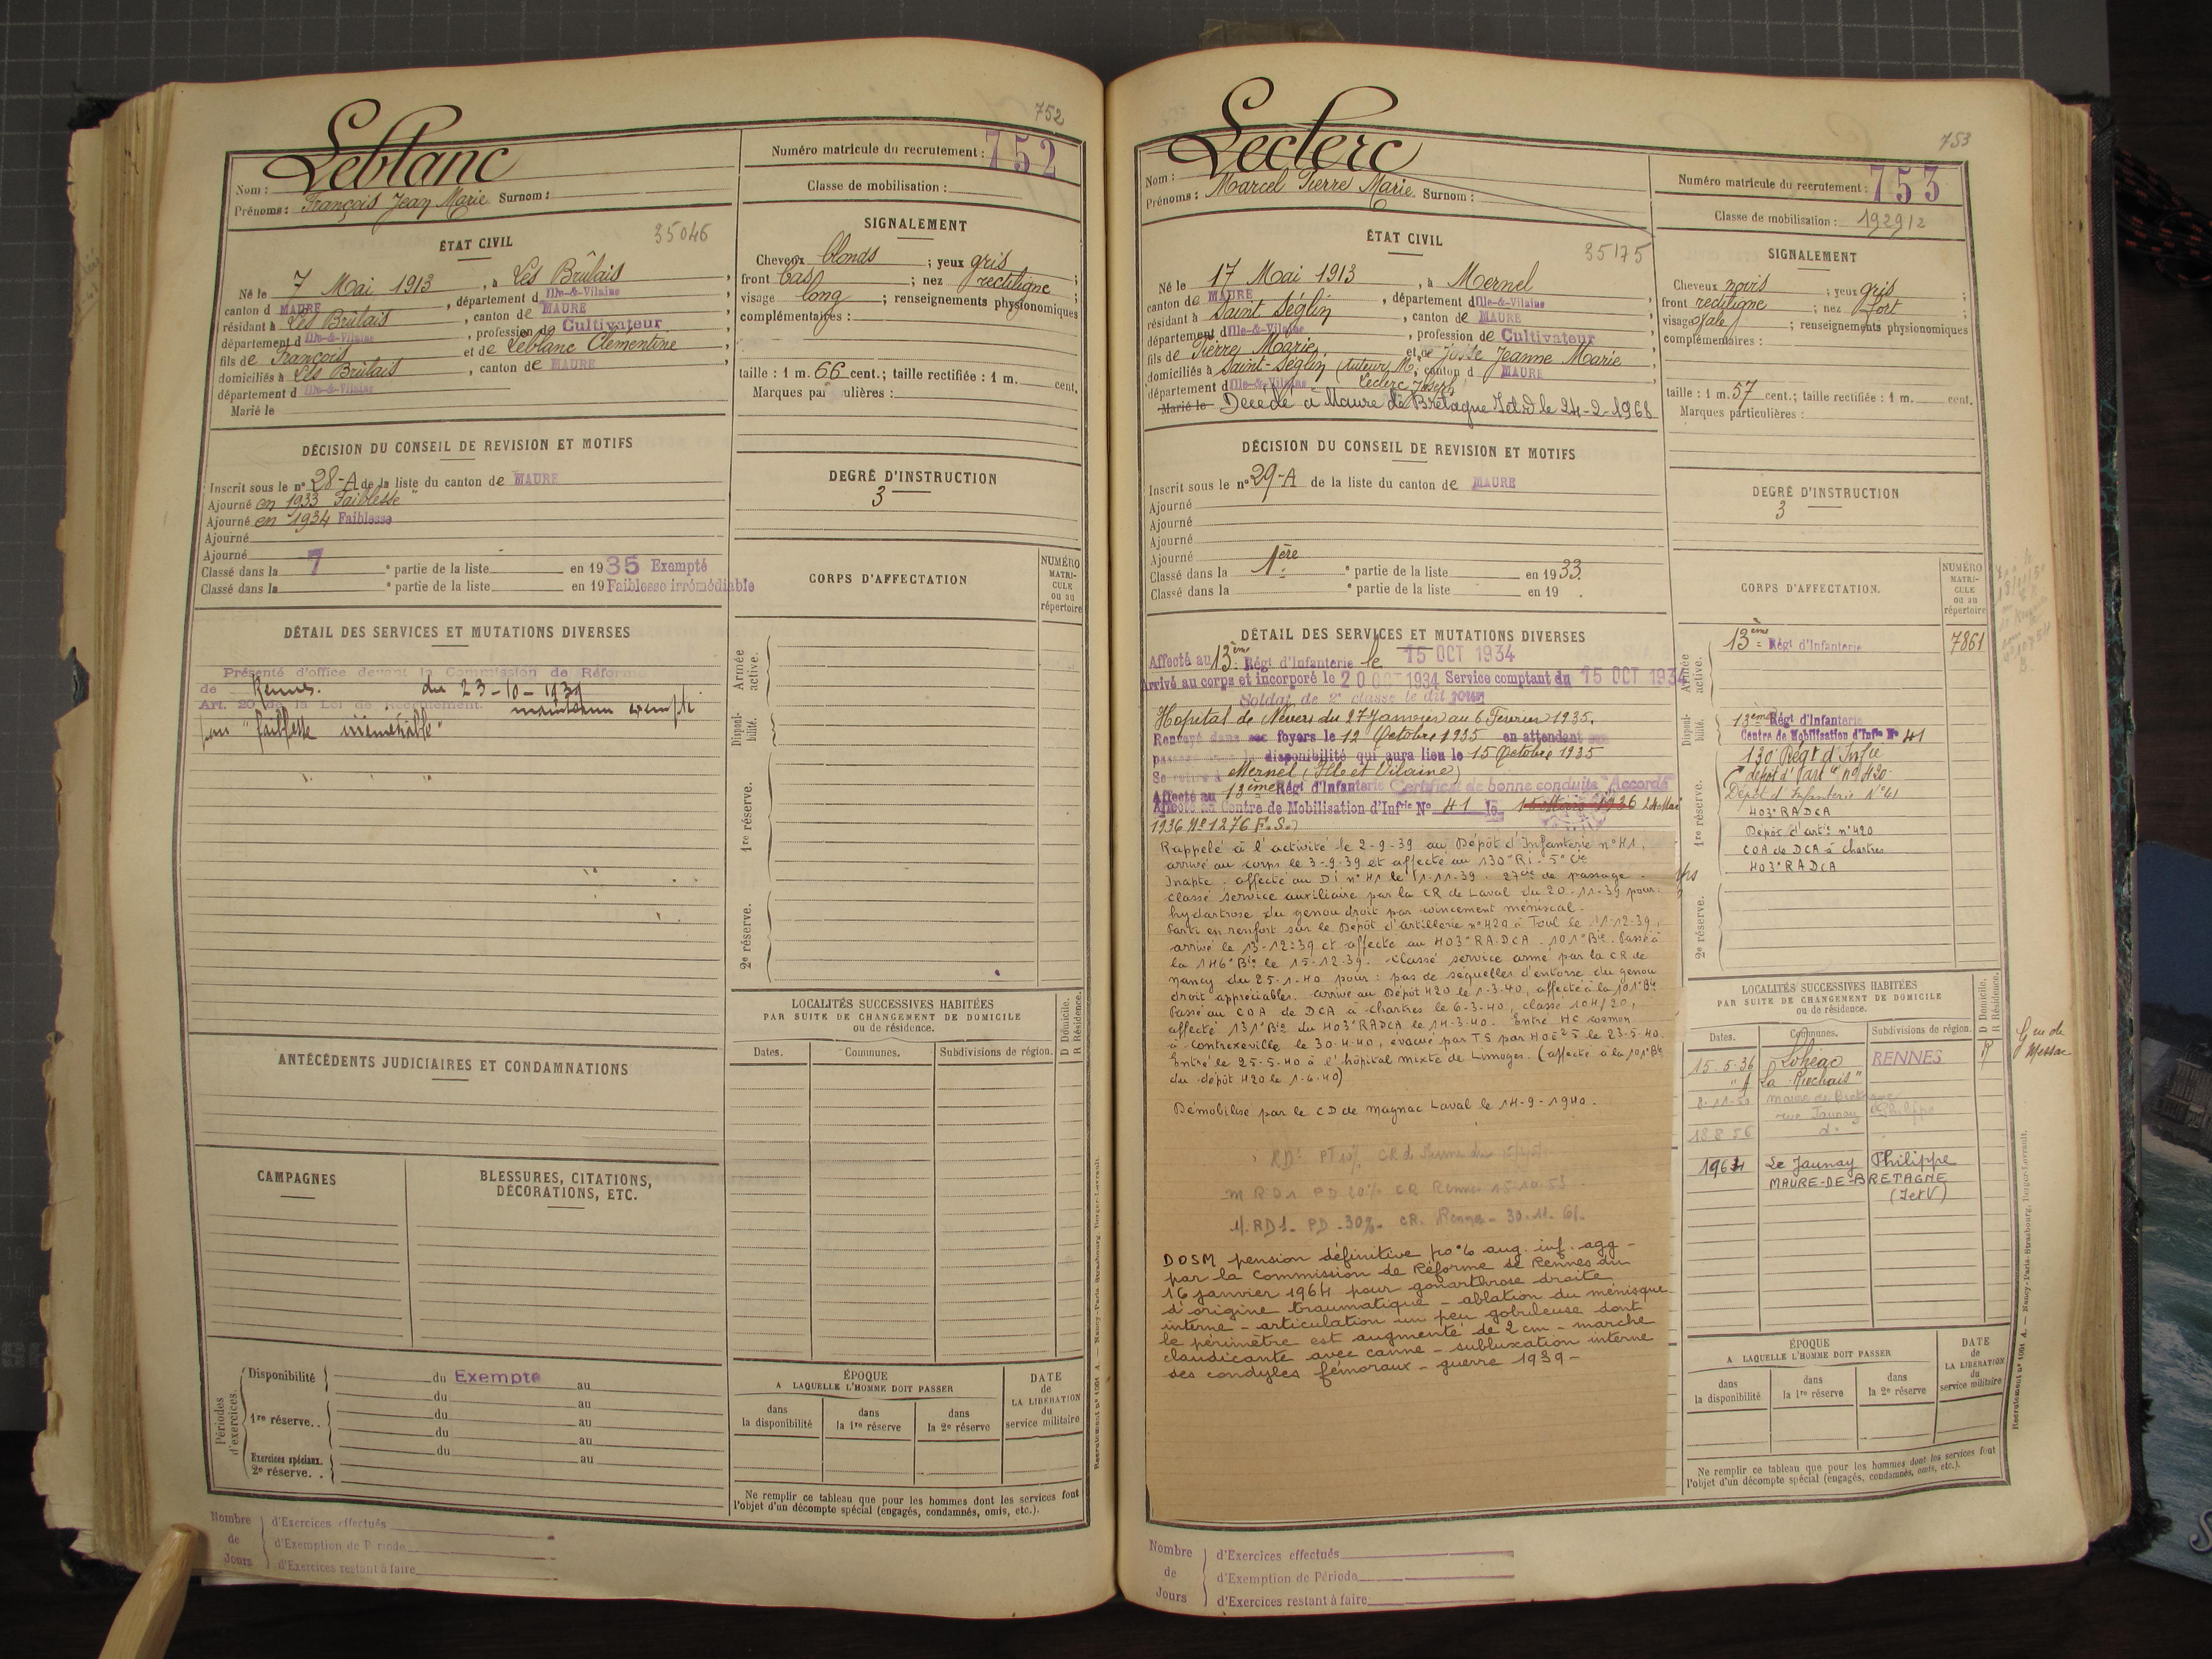 752
Leblanc
Nom :
Prénoms : François Jean Marie Surnom :
Numéro matricule du recrutement : 752
Classe de mobilisation :
ÉTAT CIVIL
35046
Né le 7 Mai 1913, à Les Brûlais,
canton d MAURE, département d Ille-&-Vilaine
résidant à Les Brûlais, canton de MAURE,
département d Ille-&-Vilaine, profession de Cultivateur,
fils de François et de Leblanc Clémentine,
domiciliés à Les Brûlais, canton de MAURE,
département d Ille-&-Vilaine
Marié le
SIGNALEMENT
Cheveux blonds ; yeux gris ;
front bas ; nez rectiligne ;
visage long ; renseignements physionomiques
complémentaires :
taille : 1 m. 66 cent.; taille rectifiée : 1 m. cent.
Marques particulières :
DÉCISION DU CONSEIL DE REVISION ET MOTIFS
Inscrit sous le n° 28-A de la liste du canton de MAURE
Ajourné en 1933 Faiblesse"
Ajourné en 1934 Faiblesse
Ajourné
Ajourné
Classé dans la 7 e partie de la liste en 1935 Exempté
Classé dans la e partie de la liste en 19 Faiblesse irrémédiable
DEGRÉ D'INSTRUCTION
3
CORPS D'AFFECTATION
NUMÉRO
MATRI-
CULE
ou au
répertoire
Armée
active.
Disponi-
bilité.
1re réserve.
2e réserve.
DÉTAIL DES SERVICES ET MUTATIONS DIVERSES
Présenté d'office devant la Commission de Réforme
de Rennes. du 23-10-1939
Art. 20 de la Loi de Recrutement. maintenu exempté
pour "faiblesse irrémédiable"
ANTÉCÉDENTS JUDICIAIRES ET CONDAMNATIONS
LOCALITÉS SUCCESSIVES HABITÉES
PAR SUITE DE CHANGEMENT DE DOMICILE
ou de résidence.
D Domicile.
R Résidence.
Dates. Communes. Subdivisions de région.
CAMPAGNES
BLESSURES, CITATIONS,
DÉCORATIONS, ETC.
Périodes
d'exercices.
Disponibilité du Exempté au
du au
1re réserve. . du au
du au
Exercices spéciaux. du au
2e réserve. . .
ÉPOQUE
A LAQUELLE L'HOMME DOIT PASSER
dans
la disponibilité
dans
la 1re réserve
dans
la 2e réserve
DATE
de
LA LIBÉRATION
du
service militaire
Ne remplir ce tableau que pour les hommes dont les services font
l'objet d'un décompte spécial (engagés, condamnés, omis, etc.).
Nombre
de
Jours
d'Exercices effectués
d'Exemption de Période
d'Exercices restant à faire
Recrutement n° 1001 A. — Nancy-Paris-Strasbourg, Berger-Levrault.
753
Leclerc
Nom :
Prénoms : Marcel Pierre Marie Surnom :
Numéro matricule du recrutement : 753
Classe de mobilisation : 1929/2
ÉTAT CIVIL
35175
Né le 17 Mai 1913, à Mernel
canton de MAURE, département d Ille-&-Vilaine
résidant à Saint Séglin, canton de MAURE,
département d Ille-&-Vilaine, profession de Cultivateur,
fils de Pierre Marie et de Josse Jeanne Marie,
domiciliés à Saint-Séglin (tuteur M., canton d MAURE,
département d Ille-&-Vilaine Leclerc Joseph
Marié le Décédé à Maure de Bretagne I et V le 24-2-1968
SIGNALEMENT
Cheveux noirs ; yeux gris ;
front rectiligne ; nez fort ;
visage ovale ; renseignements physionomiques
complémentaires :
taille : 1 m. 57 cent.; taille rectifiée : 1 m. cent.
Marques particulières :
DÉCISION DU CONSEIL DE REVISION ET MOTIFS
Inscrit sous le n° 29-A de la liste du canton de MAURE
Ajourné
Ajourné
Ajourné
Ajourné
Classé dans la 1ère e partie de la liste en 1933.
Classé dans la e partie de la liste en 19 .
DEGRÉ D'INSTRUCTION
3
CORPS D'AFFECTATION.
NUMÉRO
MATRI-
CULE
ou au
répertoire
Armée
active.
13ème Régt d'Infanterie 7861
Disponi-
bilité.
13ème Régt d'Infanterie
Centre de Mobilisation d'Infie N° 41
1re réserve.
130e Régt d'Infie
dépôt d'artie n° 420
Dépôt d'Infanterie N°41
403e RADCA
Dépôt d'artie n°420
COA de DCA à Chartres
403e RADCA
2e réserve.
DÉTAIL DES SERVICES ET MUTATIONS DIVERSES
Affecté au 13ème Régt d'Infanterie le 15 OCT 1934
Arrivé au corps et incorporé le 20 OCT 1934 Service comptant du 15 OCT 1934
Soldat de 2e classe le dit jour
Hopital de Nevers du 27 Janvier au 6 Fevrier 1935.
Renvoyé dans ses foyers le 12 Octobre 1935 en attendant son
passage dans la disponibilité qui aura lieu le 15 Octobre 1935
Se retire à Mernel (Ille et Vilaine)
Affecté au 13ème Régt d'Infanterie Certificat de bonne conduite "Accordé"
Affecté au Centre de Mobilisation d'Infie N° 41 le 15 Mars 1936 24 Mai
1936 N° 1276 F.S.)
Rappelé à l'activité le 2-9-39 au Dépôt d'Infanterie n°41,
arrivé au corps le 3-9-39 et affecté au 130e RI - 5e Cie
Inapte. affecté au DI n°41 le 11-11-39. 27e Cie de passage.
classé service auxiliaire par la CR de Laval du 20-11-39 pour :
hydartrose du genou droit par coincement méniscal.
Parti en renfort sur le Dépôt d'artillerie n°420 à Toul le 11-12-39,
arrivé le 13-12-39 et affecté au 403e RADCA. 101e Bie. Passé à
la 146e Bie le 15-12-39. Classé service armé par la CR de
Nancy du 25-1-40 pour : pas de séquelles d'entorse du genou
droit appréciables. arrivé au Dépôt 420 le 1-3-40, affecté à la 101e Bie
Passé au COA de DCA à Chartres le 6-3-40, classé 104/20,
affecté 131e Bie du 403e RADCA le 14-3-40. Entré HC
à Contrexeville le 30-4-40, évacué par TS par HOE 25 le 23-5-40.
Entré le 25-5-40 à l'hôpital mixte de Limoges. (affecté à la 101e Bie
du dépôt 420 le 1-6-40)
Démobilisé par le CD de Magnac Laval le 14-9-1940.
PT 10% CR de Rennes du
RD1 PD 20% CR Rennes 15-10-53
RD1 - PD - 30% - CR. Rennes - 30-11-61-
DOSM pension définitive aug. inf. agg -
par la Commission de Réforme de Rennes du
16 janvier 1964 pour gonarthrose droite
d'origine traumatique - ablation du ménisque
interne - articulation un peu globuleuse dont
le périmètre est augmenté de 2 cm - marche
claudicante avec canne - subluxation interne
des condyles fémoraux - guerre 1939 -
LOCALITÉS SUCCESSIVES HABITÉES
PAR SUITE DE CHANGEMENT DE DOMICILE
ou de résidence.
D Domicile.
R Résidence.
Dates. Communes. Subdivisions de région.
15-5-36 Lohéac RENNES R
"La Riochais"
Gie de
Messac
8-11-50 Maure de Bretagne
rue Jaunay Philippe
18 8 56 d°
1964 Le Jaunay Philippe
MAURE-DE-BRETAGNE
(I et V)
ÉPOQUE
A LAQUELLE L'HOMME DOIT PASSER
dans
la disponibilité
dans
la 1re réserve
dans
la 2e réserve
DATE
de
LA LIBÉRATION
du
service militaire
Ne remplir ce tableau que pour les hommes dont les services font
l'objet d'un décompte spécial (engagés, condamnés, omis, etc.).
Nombre
de
Jours
d'Exercices effectués
d'Exemption de Période
d'Exercices restant à faire
Recrutement n° 1001 A. — Nancy-Paris-Strasbourg, Berger-Levrault.